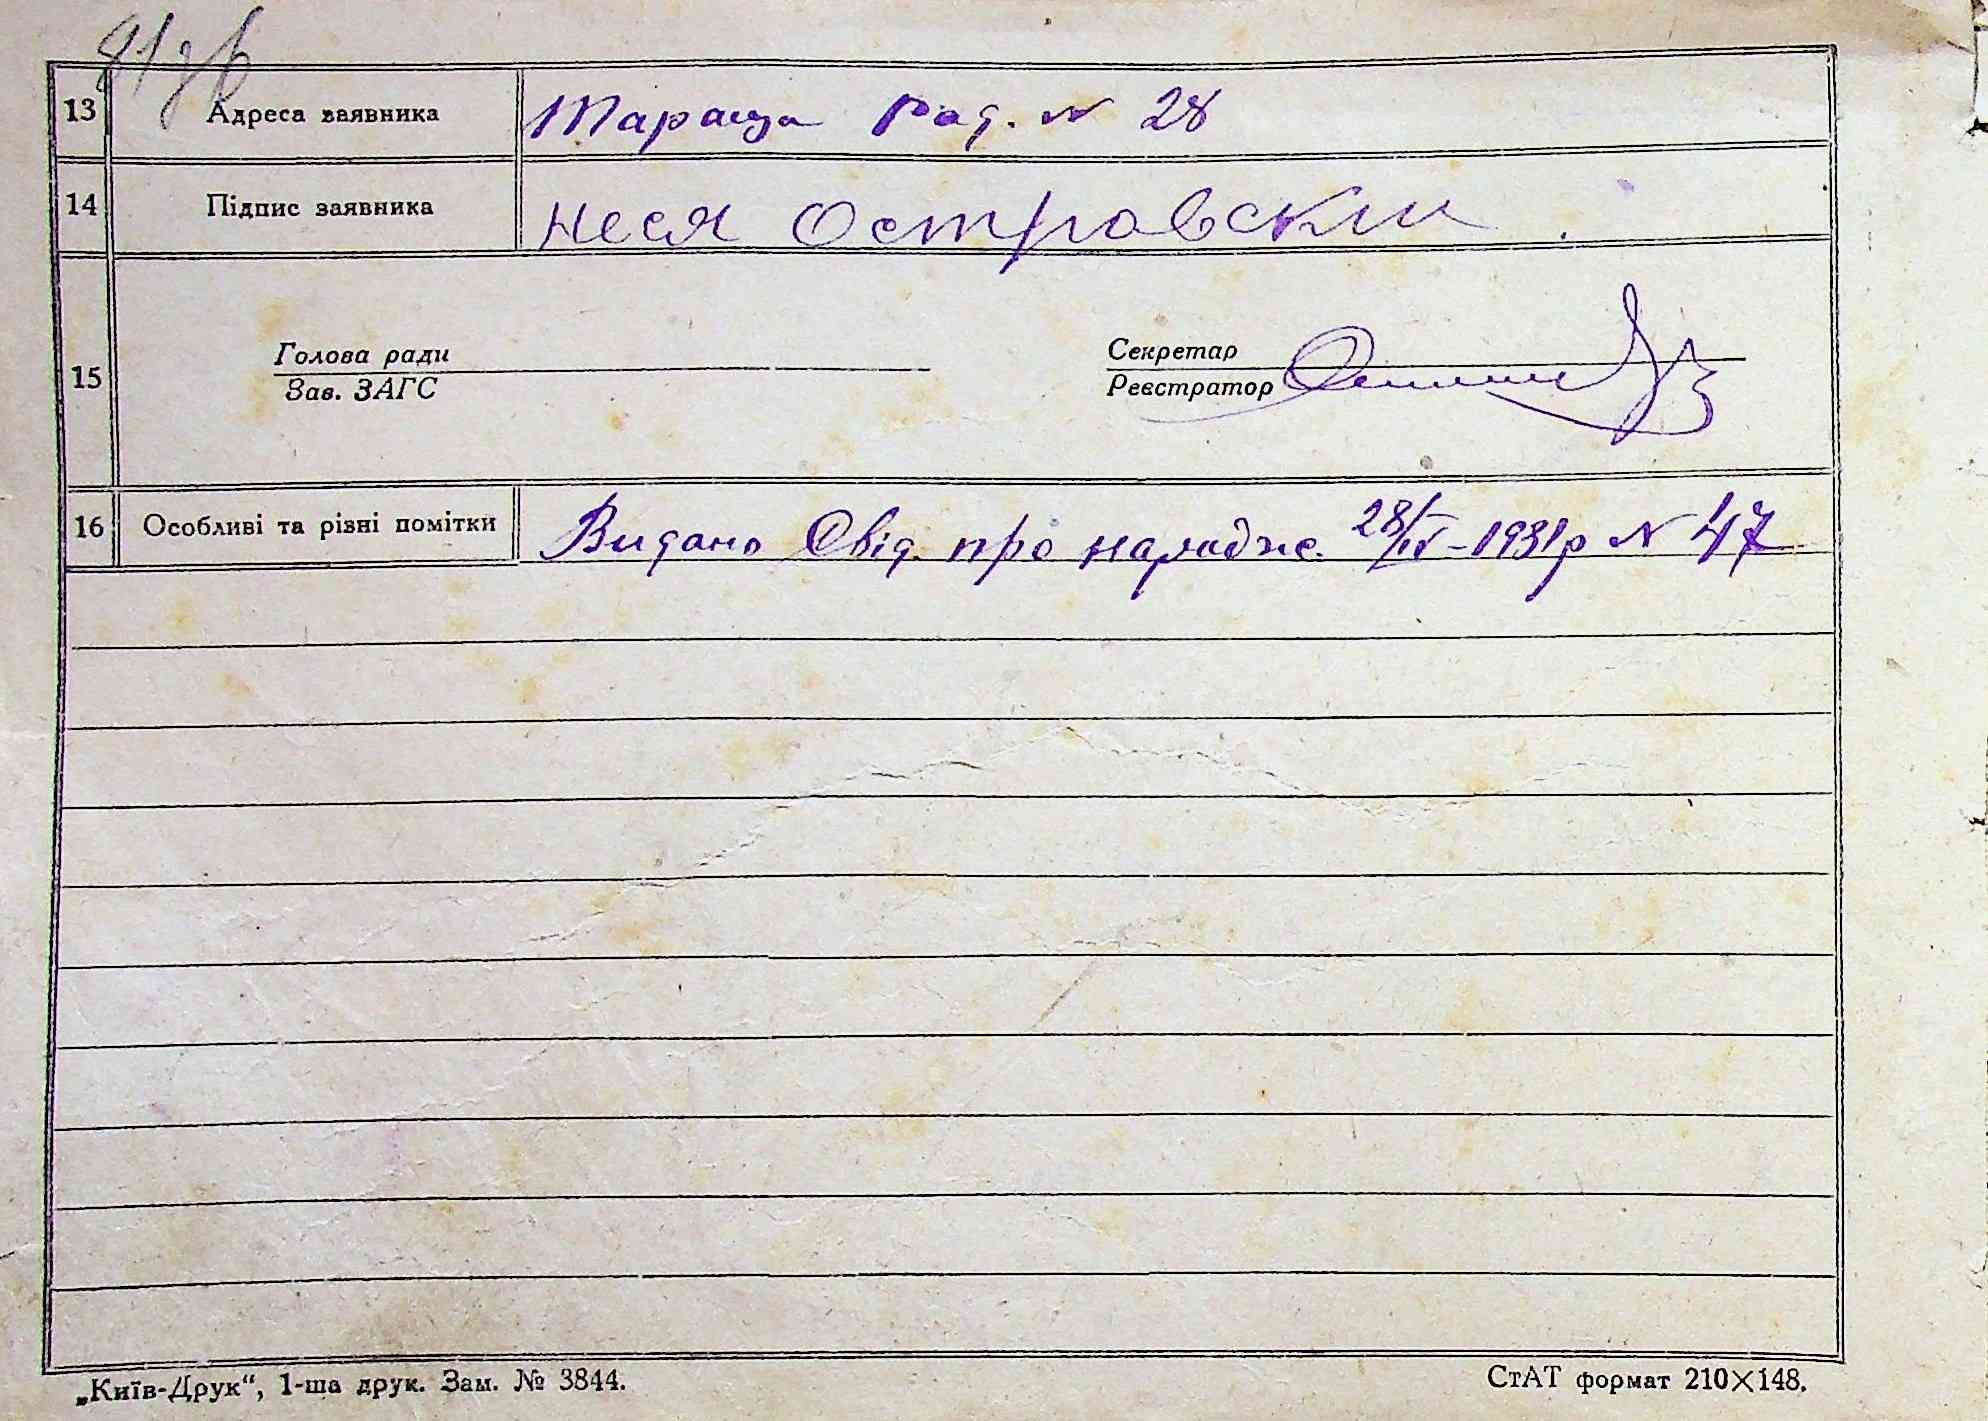 13 Адреса заявника Тараща Рад. N 28
14 Підпис заявника Неся Островски
15 Голова ради
Зав. ЗАГС
Секретар
Реєстратор
16 Особливі та різні помітки Видано Свід. про народж. 28/IV-1931р N 47
„Київ-Друк“, 1-ша друк. Зам. № 3844.
СтАТ формат 210×148.